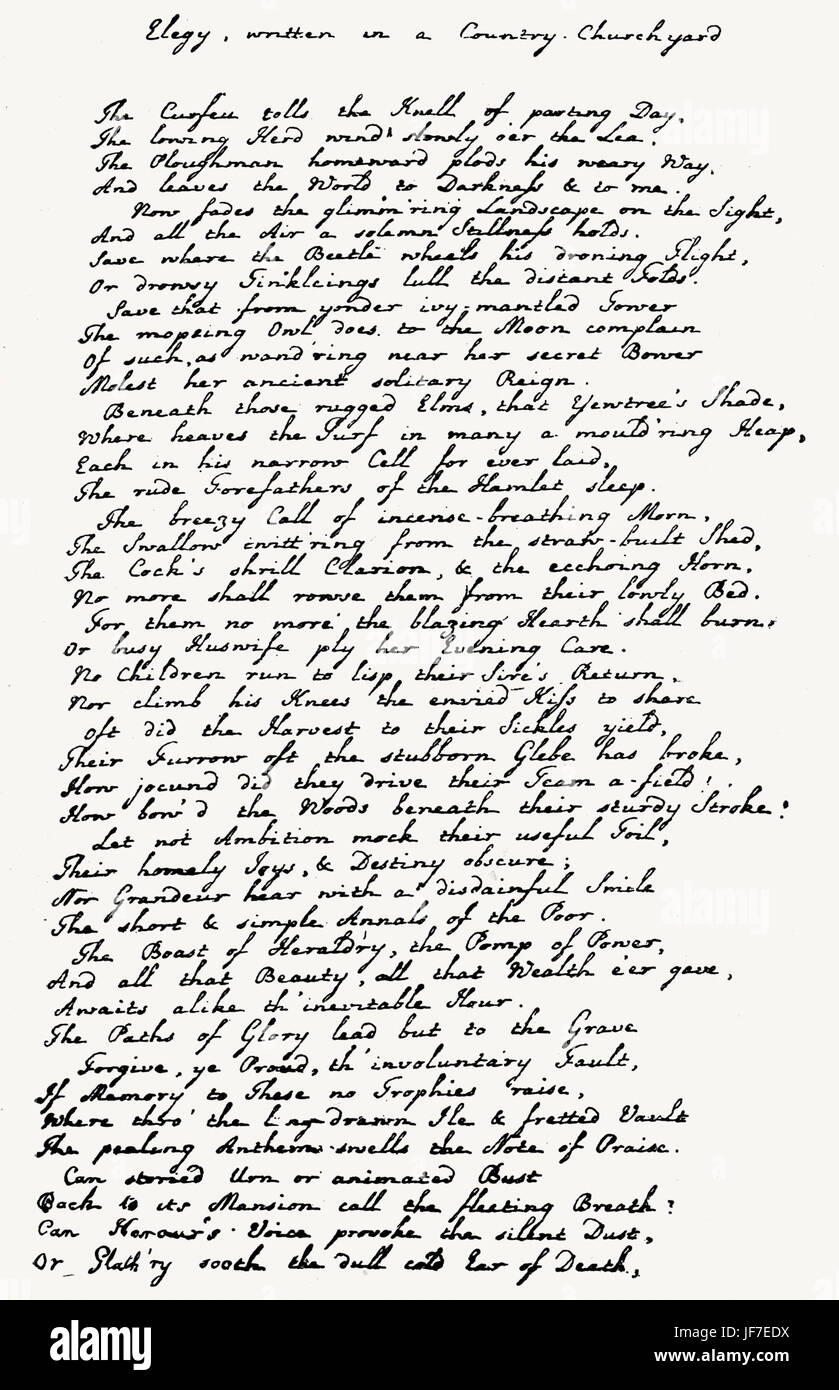 Elegy, written in a Country Churchyard
The Curfeu tolls the Knell of parting Day,
The lowing Herd wind slowly o'er the Lea,
The Ploughman homeward plods his weary Way,
And leaves the World to Darkneſs & to me.
Now fades the glimm'ring Landscape on the Sight,
And all the Air a solemn Stillneſs holds.
Save where the Beetle wheels his droning Flight,
Or drowsy Tinkleings lull the distant Folds.
Save that from yonder ivy-mantled Tower
The mopeing Owl does to the Moon complain
Of such, as wand'ring near her secret Bower
Molest her ancient solitary Reign.
Beneath those rugged Elms, that Yewtree's Shade,
Where heaves the Turf in many a mould'ring Heap,
Each in his narrow Cell for ever laid,
The rude Forefathers of the Hamlet sleep.
The breezy Call of incense-breathing Morn,
The Swallow twitt'ring from the straw-built Shed,
The Cock's shrill Clarion, & the ecchoing Horn,
No more shall rowse them from their lowly Bed.
For them no more the blazing Hearth shall burn,
Or busy Huswife ply her Evening Care.
No Children run to lisp their Sire's Return,
Nor climb his Knees the envied Kiſs to share
Oft did the Harvest to their Sickles yield,
Their Furrow oft the stubborn Glebe has broke,
How jocund did they drive their Team a-field!
How bow'd the Woods beneath their sturdy Stroke!
Let not Ambition mock their useful Toil,
Their homely Joys, & Destiny obscure;
Nor Grandeur hear with a disdainful Smile
The short & simple Annals of the Poor.
The Boast of Herald'ry, the Pomp of Power,
And all that Beauty, all that Wealth e'er gave,
Awaits alike th' inevitable Hour.
The Paths of Glory lead but to the Grave
Forgive, ye Proud, th' involuntary Fault,
If Memory to These no Trophies raise,
Where thro' the long-drawn Ile & fretted Vault
The pealing Anthem swells the Note of Praise.
Can storied Urn or animated Bust
Back to its Mansion call the fleeting Breath?
Can Honour's Voice provoke the silent Dust,
Or Flatt'ry sooth the dull cold Ear of Death,
alamy
Image ID: JF7EDX
www.alamy.com